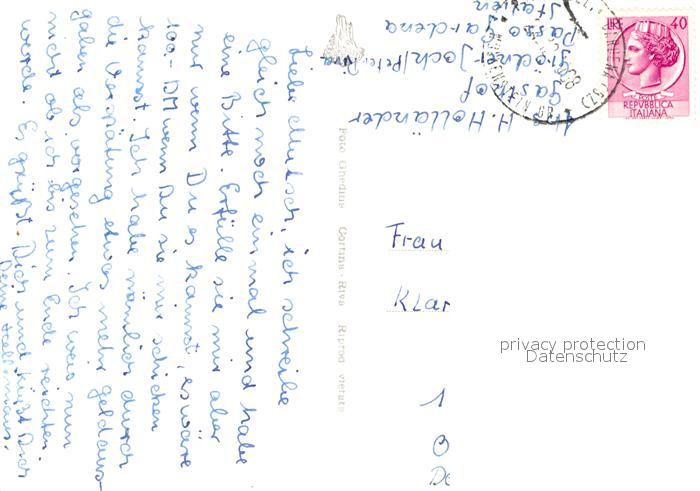 Liebe Mutsch, ich schreibe
gleich noch einmal und habe
eine Bitte. Erfülle sie mir aber
nur wenn Du es kannst, es wäre
100.- DM wenn Du sie mir schicken
kannst. Ich habe nämlich durch
die Verspätung etwas mehr Geld aus-
geben als vorgesehen. Ich weis nun
nicht ob ich bis zum Ende reichten
werde. Es grüßt Dich und küßt Dich
Deine
H. Holländer
Gasthof
Grödner Joch
Passo Gardena
Italien
Foto Ghedina Cortina - Riva Riprod. vietata
LIRE 40
REPVBBLICA
ITALIANA
Frau
Klar
privacy protection
Datenschutz
1